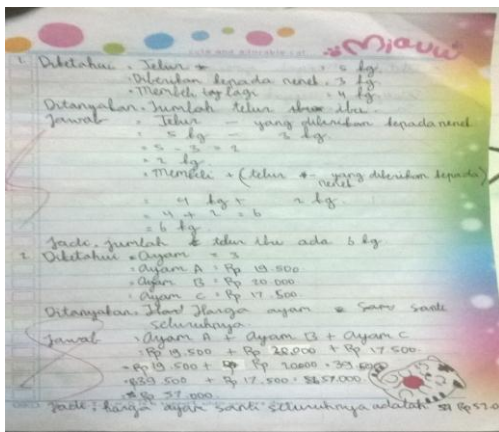 Miauw
1. Diketahui : Telur : 5 kg.
: Diberikan kepada nenek : 3 kg
: Membeli lagi : 4 kg
Ditanyakan : Jumlah telur ibu.
Jawab : Telur - yang diberikan kepada nenek
: 5 kg - 3 kg.
= 5 - 3 = 2
= 2 kg.
= Membeli + (telur - yang diberikan kepada
nenek)
: 4 kg + 2 kg.
= 4 + 2 = 6
= 6 kg
Jadi, jumlah telur ibu ada 6 kg
2. Diketahui : Ayam = 3
: Ayam A : Rp 19.500
: Ayam B : Rp 20.000
: Ayam C : Rp 17.500.
Ditanyakan : Harga ayam santi
seluruhnya.
Jawab : Ayam A + Ayam B + Ayam C
: Rp 19.500 + Rp 20.000 + Rp 17.500.
= Rp 19.500 + Rp 20.000 = 39.500
= 39.500 + Rp 17.500 : 57.000.
= Rp 57.000.
Jadi : harga ayam santi seluruhnya adalah Rp 57.0